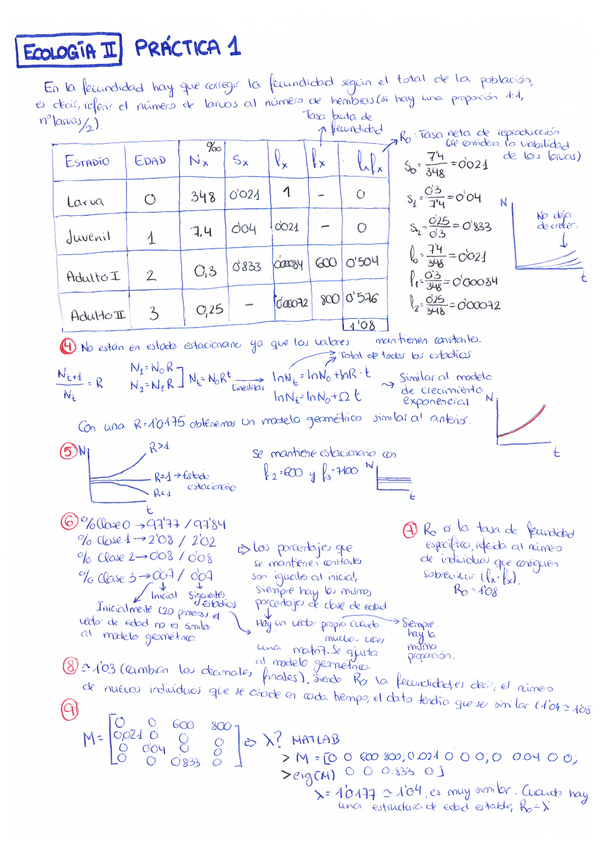 ECOLOGÍA II PRÁCTICA 1
En la fecundidad hay que corregir la fecundidad según el total de la población,
es decir, referir el número de larvas al número de hembras (si hay una proporción 1:1,
nº larvas/2).
Tasa bruta de fecundidad
R₀: Tasa neta de reproducción
(se considera la viabilidad
de las larvas)
ESTADÍO EDAD ‰ Nx Sx lx fx lxfx
Larva 0 348 0'021 1 - 0
Juvenil 1 7,4 0'04 0'021 - 0
Adulto I 2 0,3 0'833 0'00084 600 0'504
Adulto II 3 0,25 - 0'00072 800 0'576
1'08
S₀ = 7'4/348 = 0'021
S₁ = 0'3/7'4 = 0'04
S₂ = 0'25/0'3 = 0'833
l₀ = 7'4/348 = 0'021
l₁ = 0'3/348 = 0'00084
l₂ = 0'25/348 = 0'00072
N
No deja
de crecer.
t
4 No están en estado estacionario ya que los valores mantienen constantes.
Total de todos los estadíos
Nt+1/Nt = R
N₁ = N₀R
N₂ = N₁R
Nt = N₀Rᵗ
Linealizar
lnNt = lnN₀ + lnR · t
lnNt = lnN₀ + Ω t
Similar al modelo
de crecimiento
exponencial
N
t
Con una R=1'0175 obtenemos un modelo geométrico similar al anterior.
5 N
R>1
R=1 → Estado
estacionario
R<1
t
Se mantiene estacionario con
f₂=600 y f₃=700
N
t
6 % Clase 0 → 97'77 / 97'84
% Clase 1 → 2'08 / 2'02
% Clase 2 → 0'08 / 0'08
% Clase 3 → 0'07 / 0'07
Inicial Siguientes
estadíos
Inicialmente (20 primeros) el
vector de edad no es similar
al modelo geométrico.
Los porcentajes que
se mantienen constantes
son iguales al inicial,
siempre hay los mismos
porcentajes de clase de edad
Hay un vector propio cuando
mucho veces
una matriz. Se ajusta
al modelo geométrico.
Siempre
hay la
misma
proporción.
7 R₀ es la tasa de fecundidad
específica, referida al número
de individuos que consiguen
sobrevivir (lx·fx).
R₀=1'08
8 ≃1'03 (cambian los decimales finales). Siendo R₀ la fecundidad es decir, el número
de nuevos individuos que se añade en cada tiempo, el dato tendría que ser similar (1'04≃1'08
9
M = [0 0 600 800
0,021 0 0 0
0 0'04 0 0
0 0 0'833 0]
⇒ λ? MATLAB
> M = [0 0 600 800, 0.021 0 0 0, 0 0.04 0 0,
0 0 0.833 0]
> eig(M)
λ = 1'0177 ≃ 1'04, es muy similar. Cuando hay
una estructura de edad estable, R₀=λ